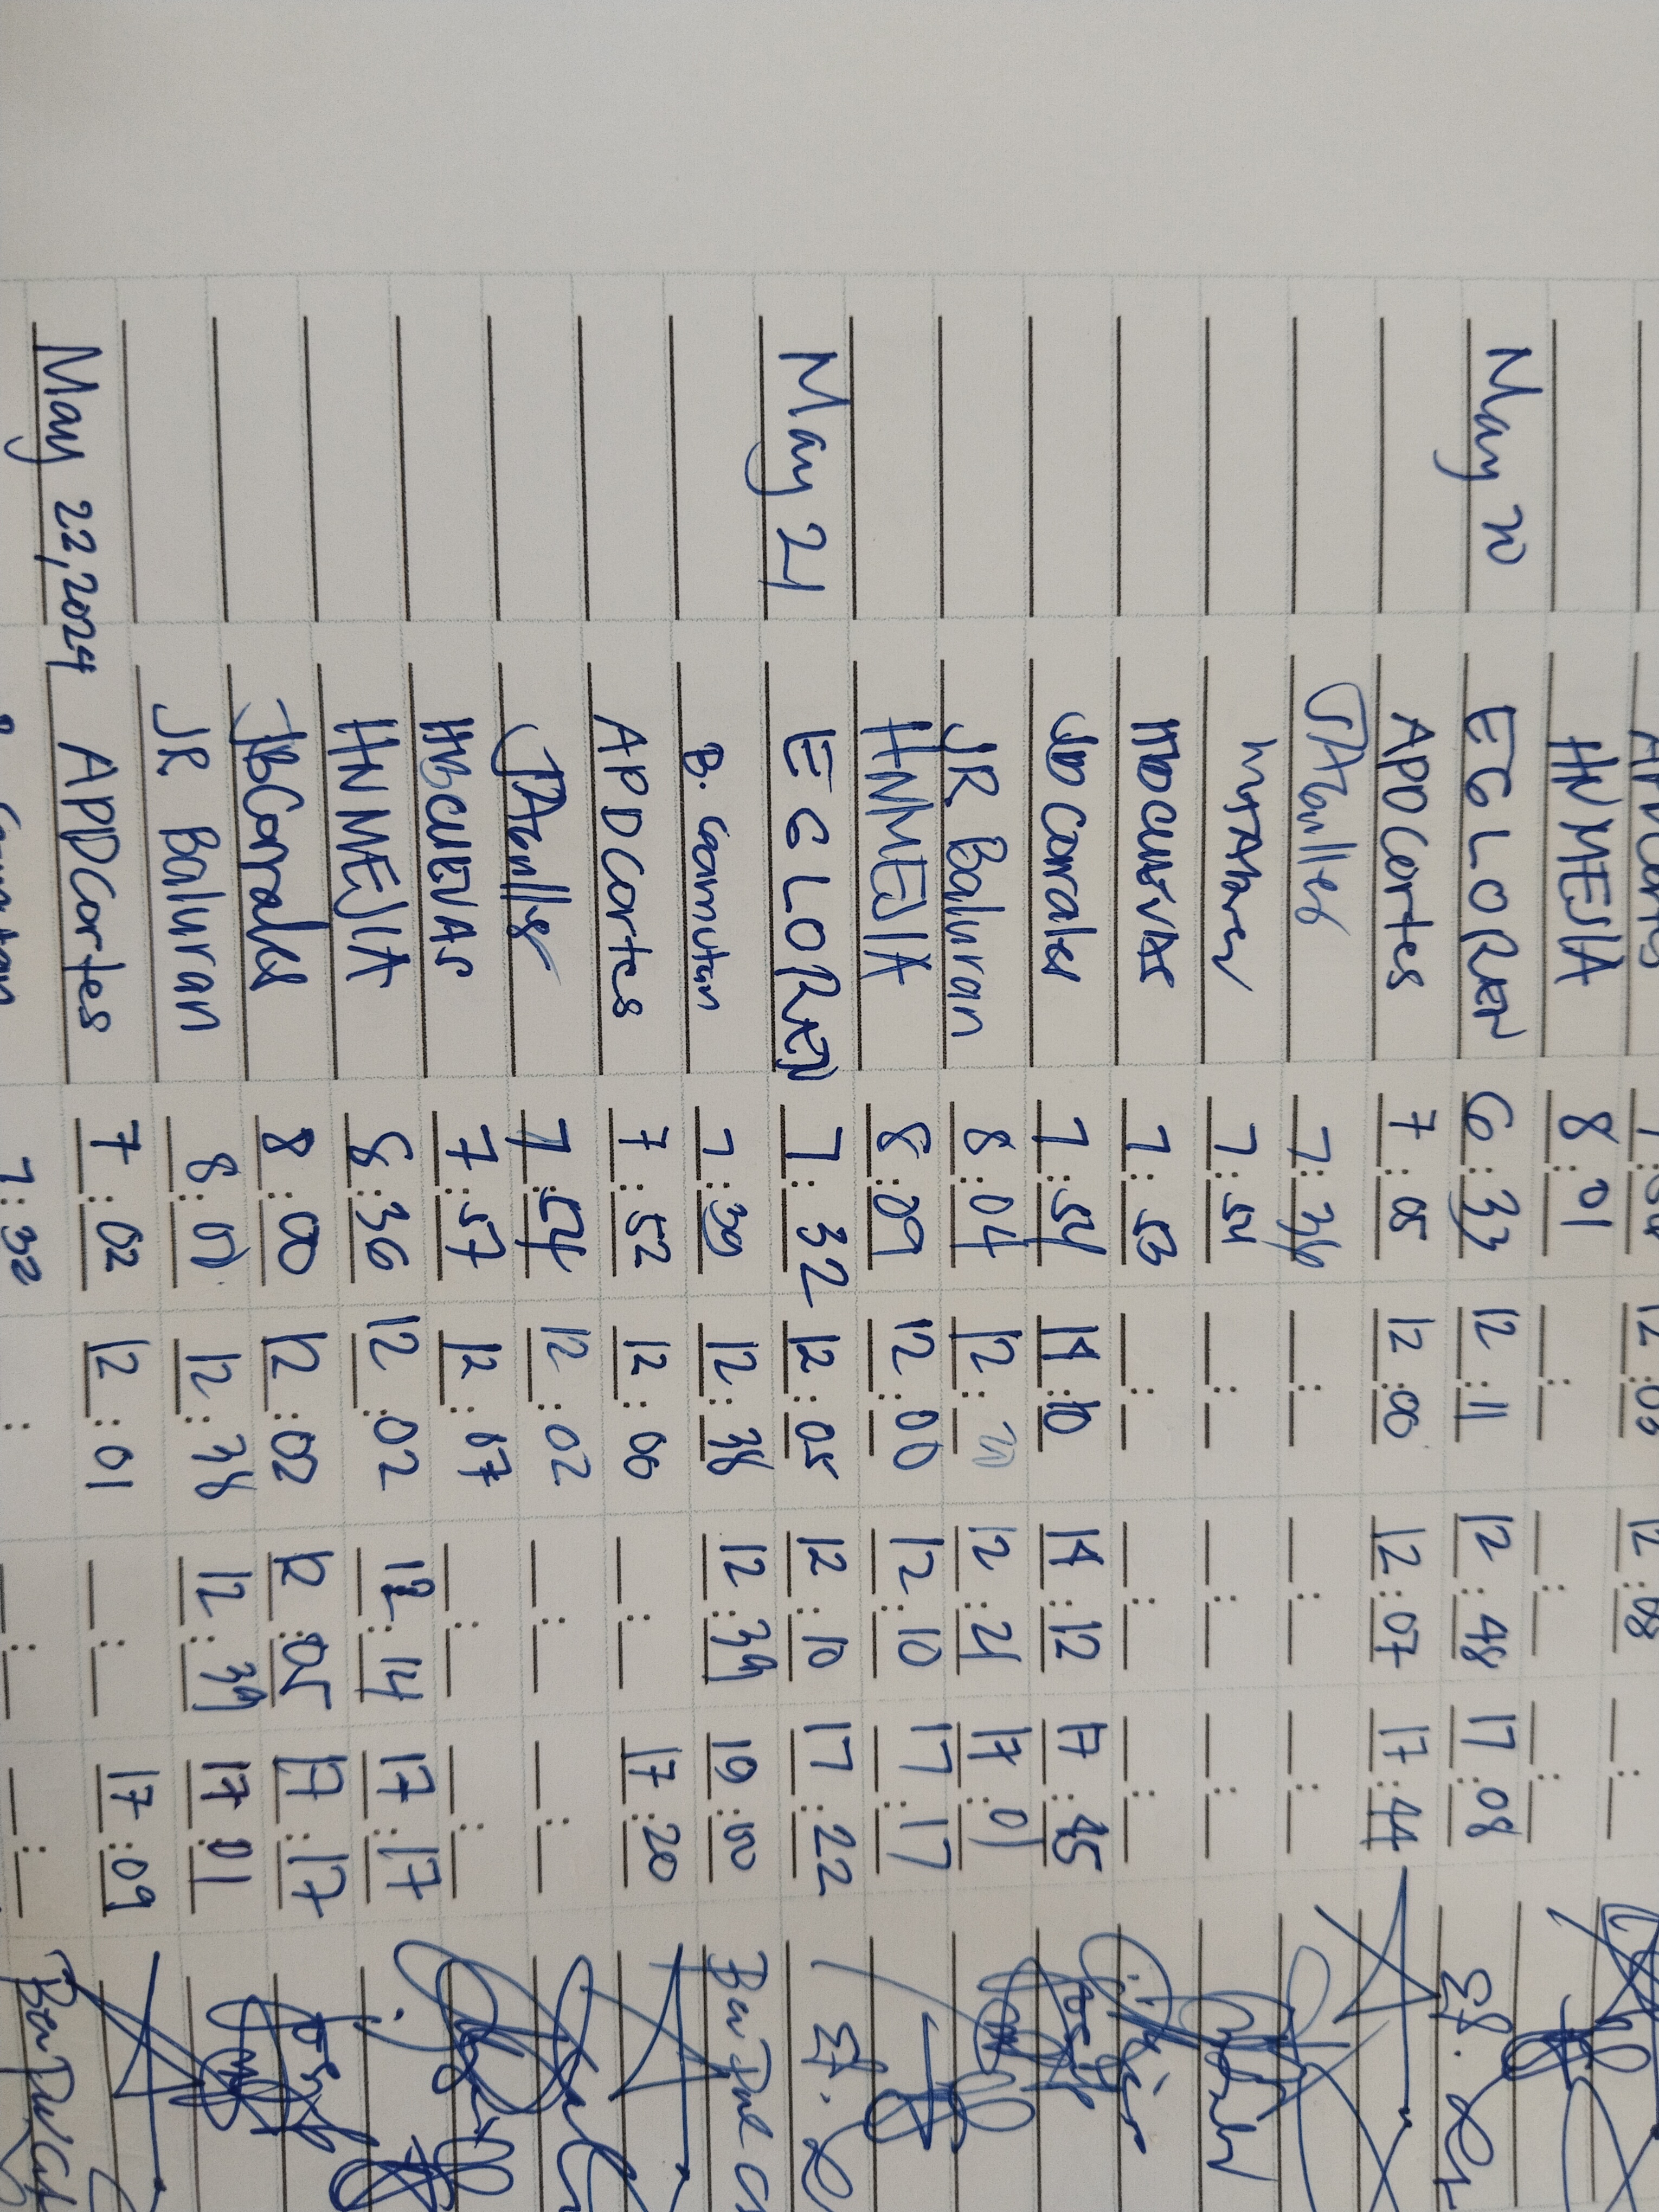 12:03 12:08
HNMEJIA 8:01
May 20 EGLOREN 6:33 12:11 12:48 17:08
APDCortes 7:05 12:00 12:07 17:44
JTAbulles 7:36
7:54
HBCUEVAS 7:53
JBCorrales 7:54 14:10 14:12 17:45
JR Baluran 8:04 12: 12:21 17:01
HNMEJIA 8:09 12:00 12:10 17:17
May 21 EGLOREN 7:32 12:05 12:10 17:22
B. Caamutan 7:39 12:38 12:39 19:00
APDCortes 7:52 12:00 17:20
JTAbulles 7:54 12:02
HBCUEVAS 7:57 12:07
HNMEJIA 8:36 12:02 12:14 17:17
JBCorrales 8:00 12:02 12:05 17:17
JR Baluran 8:01 12:38 12:39 17:01
May 22, 2024 APDCortes 7:02 12:01 17:09
7:32